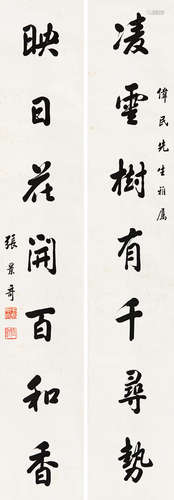 偉民先生雅屬
凌雲樹有千尋勢
映日花開百和香
張景奇